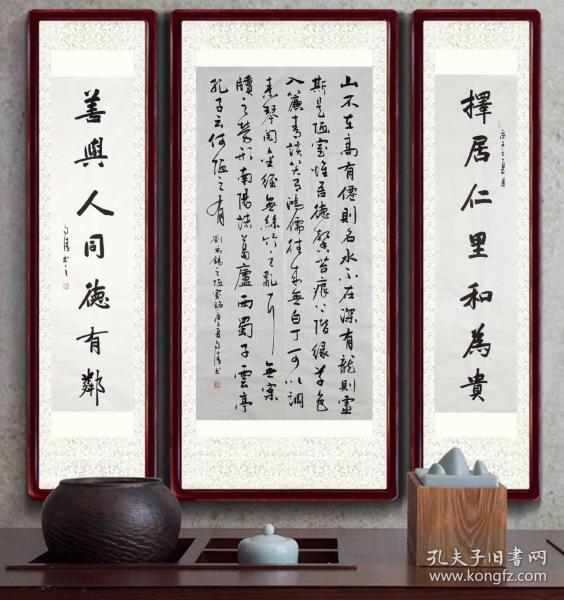 擇居仁里和為貴
庚子之夏月
山不在高有僊則名水不在深有龍則靈
斯是陋室惟吾德馨苔痕上階綠草色
入簾青談笑有鴻儒往來無白丁可以調
素琴閱金經無絲竹之亂耳無案
牘之勞形南陽諸葛廬西蜀子雲亭
孔子云何陋之有
劉禹錫之陋室銘庚子夏
善與人同德有鄰
孔夫子旧书网
www.kongfz.com